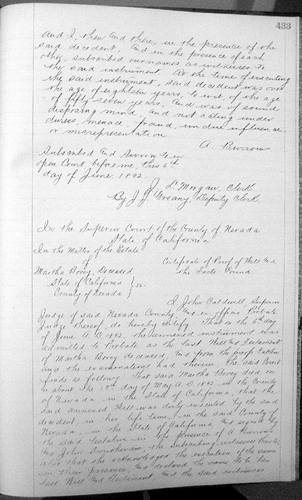 433
And I, then and there, in the presence of the
said decedent, and in the presence of each
other, subscribed our names as witnesses to
the said instrument. At the time of executing
the said instrument, said decedent was over
the age of eighteen years, to wit, of the age
of fifty-seven years, and was of sound
disposing mind and not acting under
duress, menace, fraud, undue influence
or misrepresentation
Subscribed and sworn to in
open Court before me this 6th
day of June 1892.
Morgan, Clerk
By J. J. Deputy Clerk
In the Superior Court of the County of Nevada
State of California
In the Matter of the Estate
of
Certificate of Proof of Will and
Martha deceased
the Facts Found
State of California
County of Nevada } ss.
I, John Caldwell, Superior
Judge of said Nevada County and
Judge thereof, do hereby certify That on the 6th day
of June A.D. 1892, the annexed instrument was
admitted to Probate as the last Will and Testament
of Martha deceased, and from the proofs taken
and the examination had therein the said Court
finds as follows: That said Martha died on
or about the day of May A.D. 1892 in the County
of Nevada in the State of California, that the
said annexed Will was duly executed by the said
decedent in her life time in the said County of
Nevada in the State of California and signed by
the said testatrix in the presence of
and John the subscribing witnesses thereto
also that she acknowledged the execution of the same
in their presence, and declared the same to be her
last Will and Testament and the said witnesses